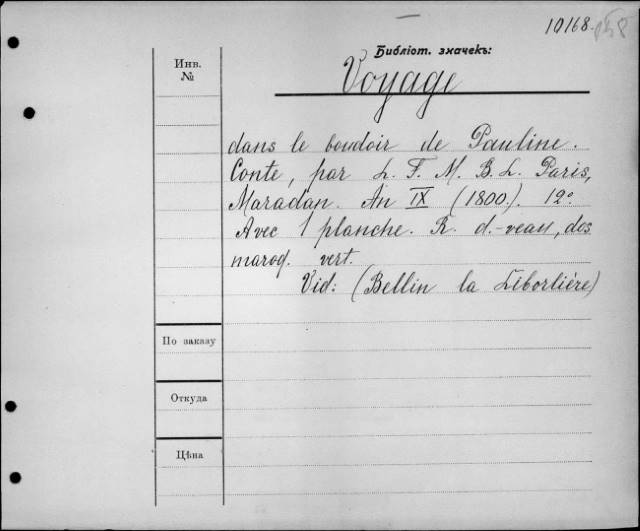 10168.
Библіот. значекъ:
Инв.
№
Voyage
dans le boudoir de Pauline.
Conte, par L. F. M. B. L. Paris,
Maradan. An IX (1800.). 12º
Avec 1 planche. R. d.-veau, dos
maroq. vert.
Vid: (Bellin la Liborlière)
По заказу
Откуда
Цѣна